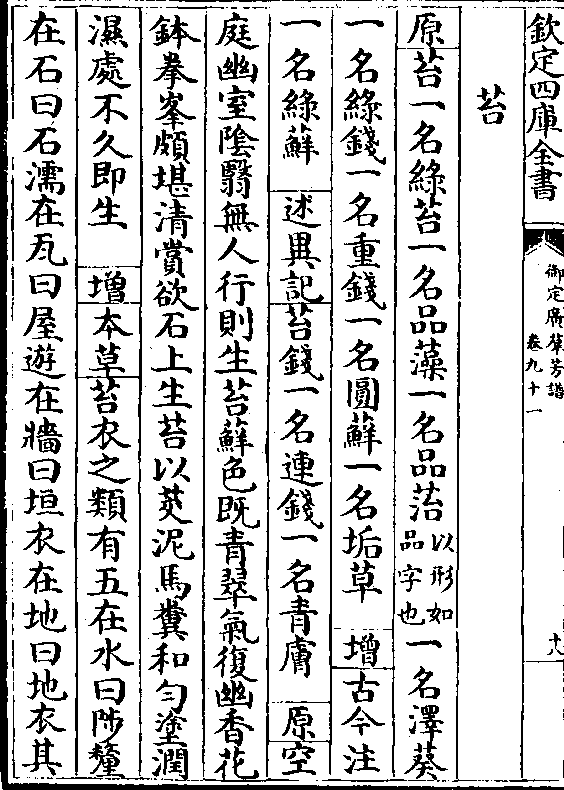 欽定四庫全書
御定廣羣芳譜
卷九十一
十八
苔
原苔一名綠苔一名品藻一名品萿以形如品字也一名澤葵
一名綠錢一名重錢一名圓蘚一名垢草 增古今注
一名綠蘚 述異記苔錢一名連錢一名青膚 原空
庭幽室陰翳無人行則生苔蘚色既青翠氣復幽香花
鉢拳峯頗堪清賞欲石上生苔以茭泥馬糞和勻塗潤
濕處不久即生 增本草苔衣之類有五在水曰陟釐
在石曰石濡在瓦曰屋遊在牆曰垣衣在地曰地衣其